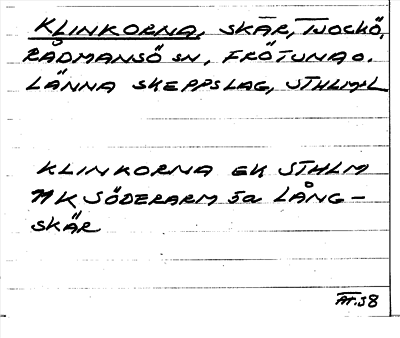 KLINKORNA, SKÄR, TJOCKÖ,
RÅDMANSÖ SN, FRÖTUNA O.
LÄNNA SKEPPSLAG, STHLM:L
KLINKORNA EK STHLM
MK SÖDERARM 5a LÅNG-
SKÄR
AT.38